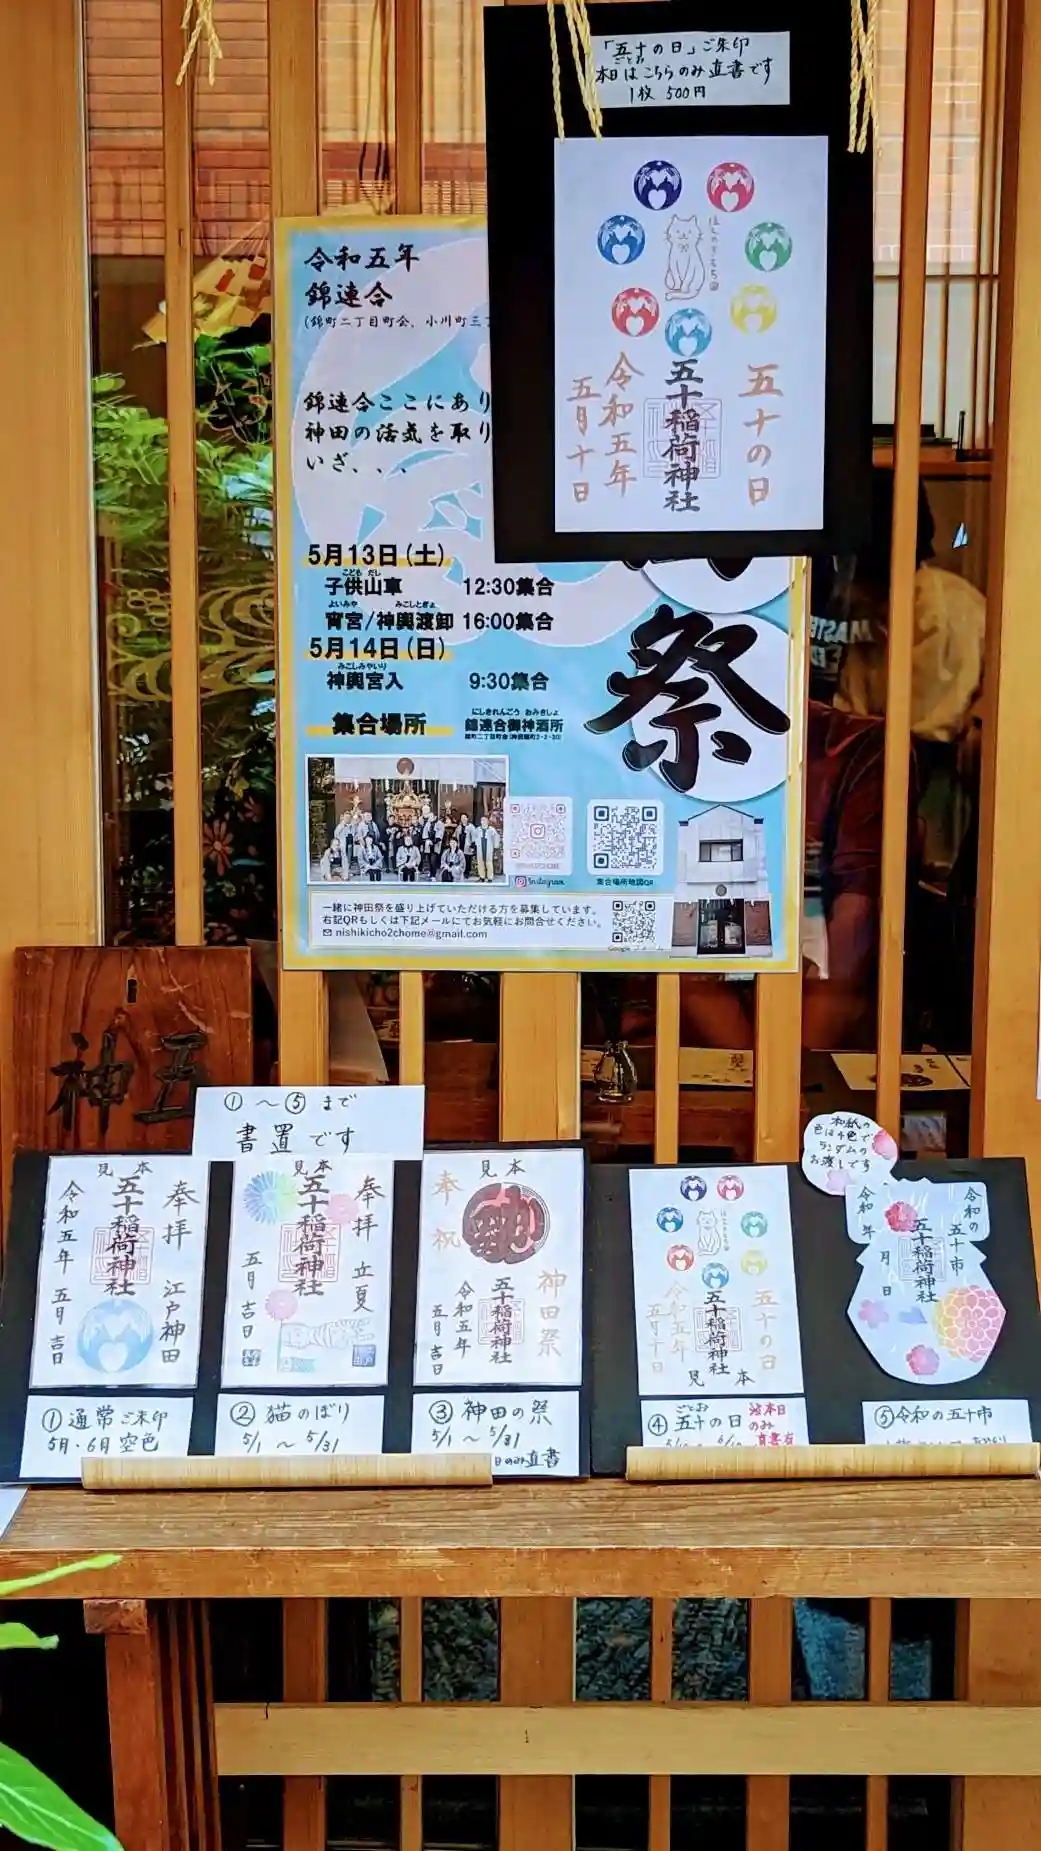 「五十の日」ご朱印
ごとお
本日はこちらのみ直書です
1枚 500円
五十の日
五十稲荷神社
令和五年
五月十日
令和五年
錦連合
(錦町二丁目町会、小川町三丁
錦連合ここにあり
神田の活気を取り
いざ、、、
5月13日(土)
こども だし
子供山車 12:30集合
よいみや みこしとぎょ
宵宮/神輿渡卸 16:00集合
5月14日(日)
みこしみやいり
神輿宮入 9:30集合
にしきれんごう おみきしょ
集合場所 錦連合御神酒所
祭
Instagram
集合場所地図QR
一緒に神田祭を盛り上げていただける方を募集しています。
右記QRもしくは下記メールにてお気軽にお問合せください。
nishikicho2chome@gmail.com
五
神
①〜⑤まで
書置です
見本
奉拝
江戸神田
五十稲荷神社
令和五年
五月吉日
①通常ご朱印
5月・6月 空色
見本
奉拝
立夏
五十稲荷神社
五月吉日
②猫のぼり
5/1 〜 5/31
見本
奉祝
神田祭
五十稲荷神社
令和五年
五月吉日
③神田の祭
5/1 〜 5/31
日のみ直書
五十の日
五十稲荷神社
令和五年
五月十日
見本
ごとお
④五十の日
本日
のみ
和紙の
色は4色で
ランダムの
お渡しです
令和の
五十市
五十稲荷神社
令和 年
月 日
⑤令和の五十市